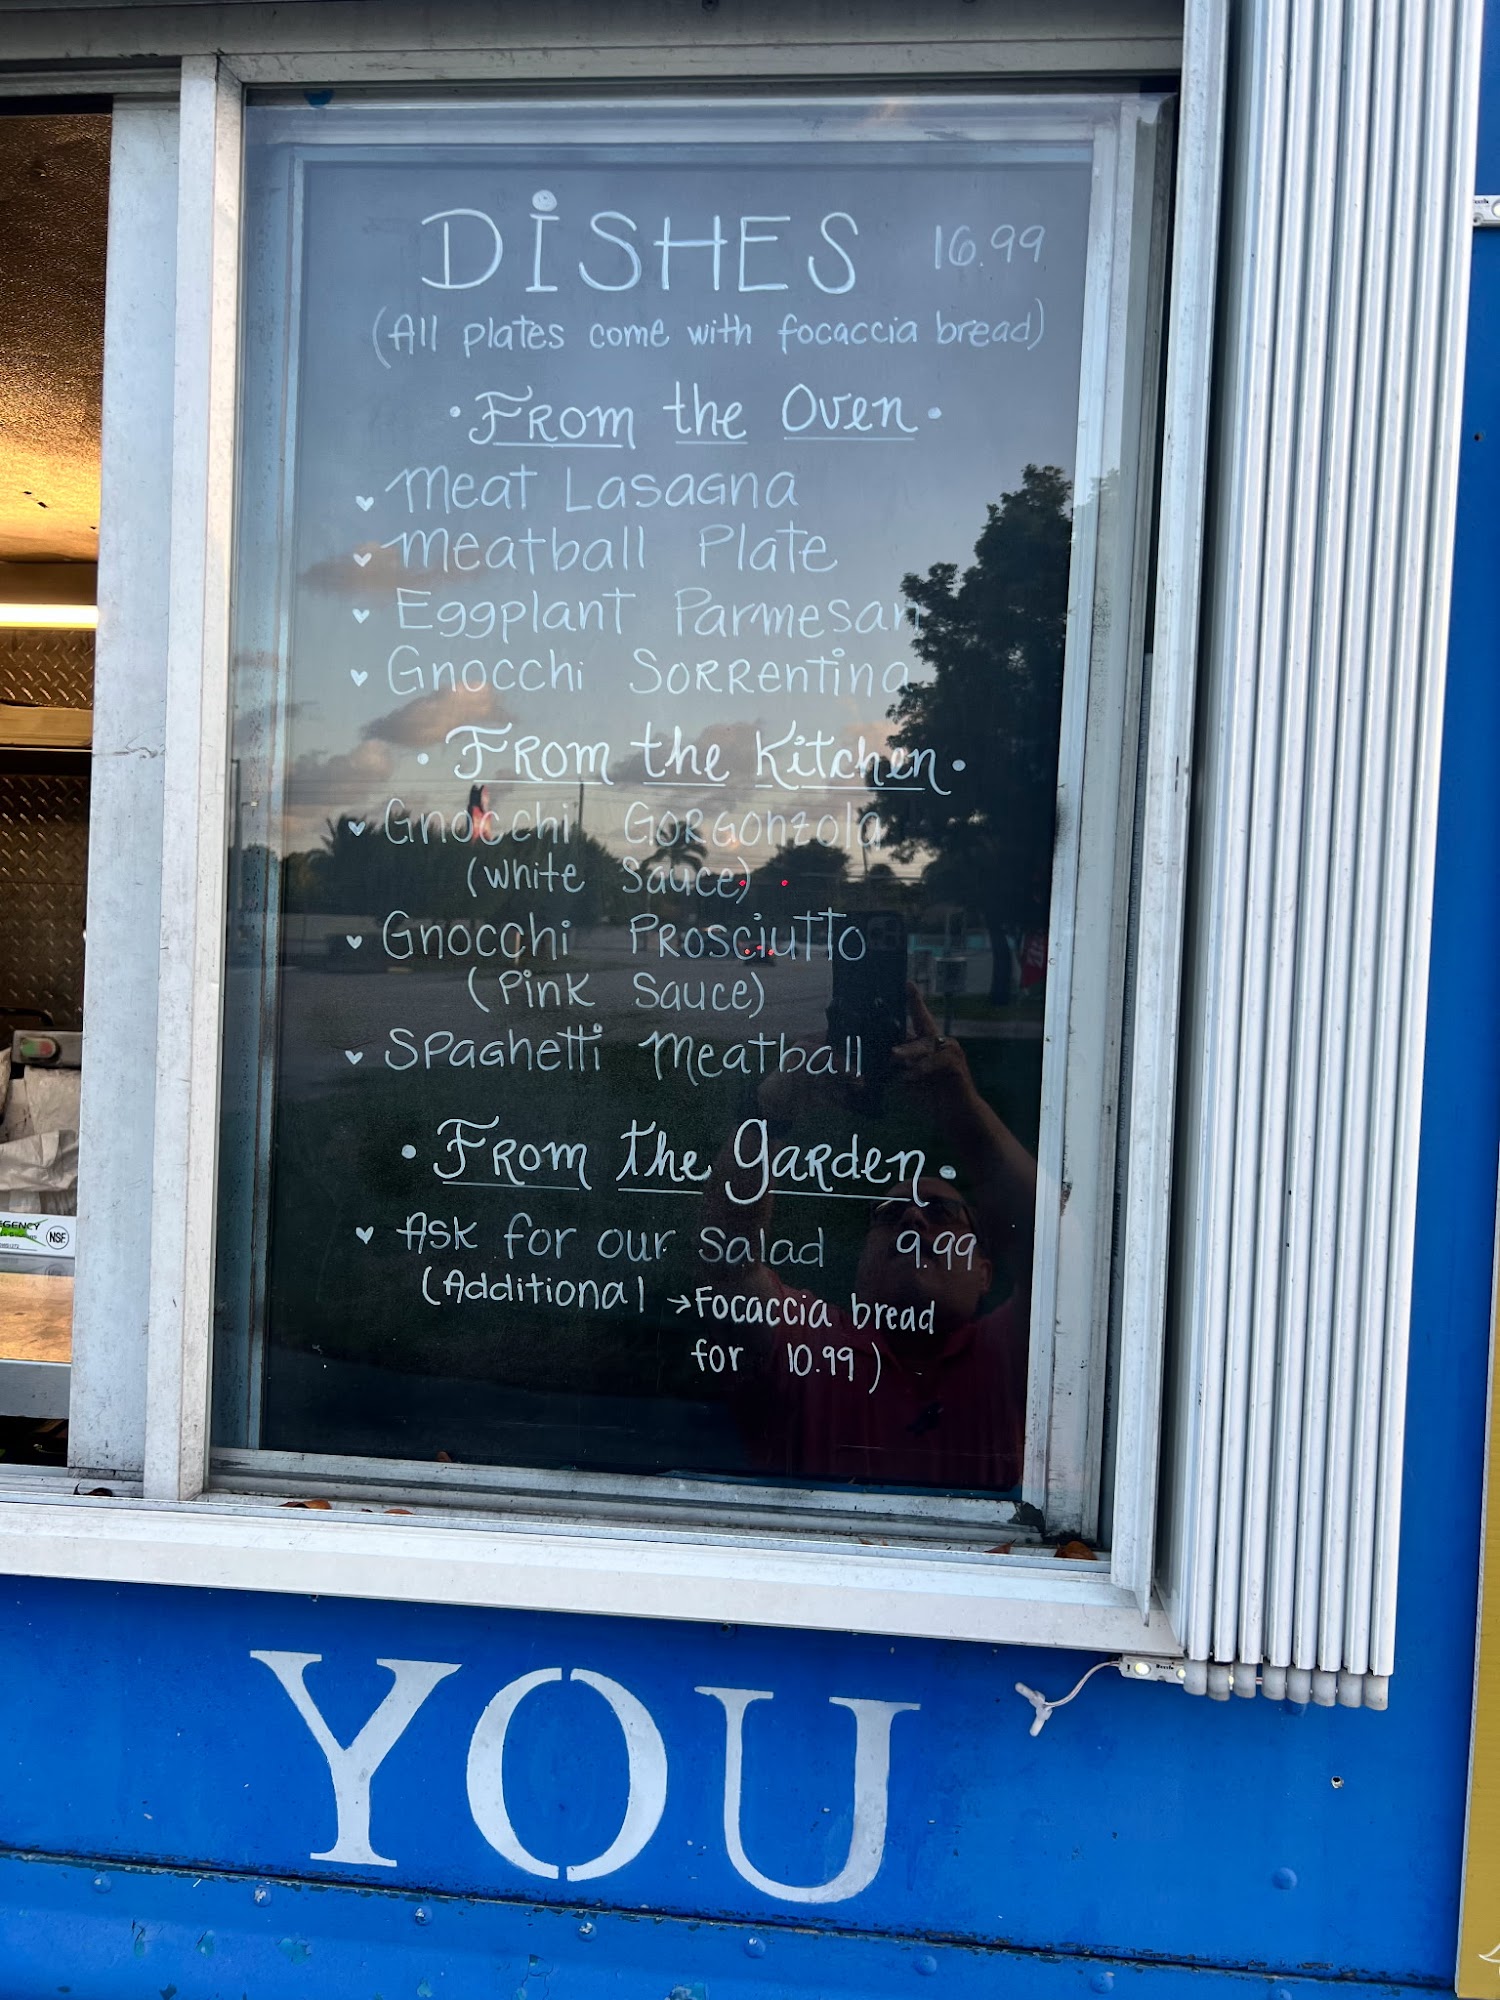 DISHES 16.99
(All plates come with focaccia bread)
• From the Oven •
♥ Meat Lasagna
♥ Meatball Plate
♥ Eggplant Parmesan
♥ Gnocchi Sorrentina
• From the Kitchen •
♥ Gnocchi Gorgonzola
(White Sauce)
♥ Gnocchi Prosciutto
(Pink Sauce)
♥ Spaghetti Meatball
• From the Garden •
♥ Ask for our Salad 9.99
(Additional → Focaccia bread
for 10.99)
NSF
YOU